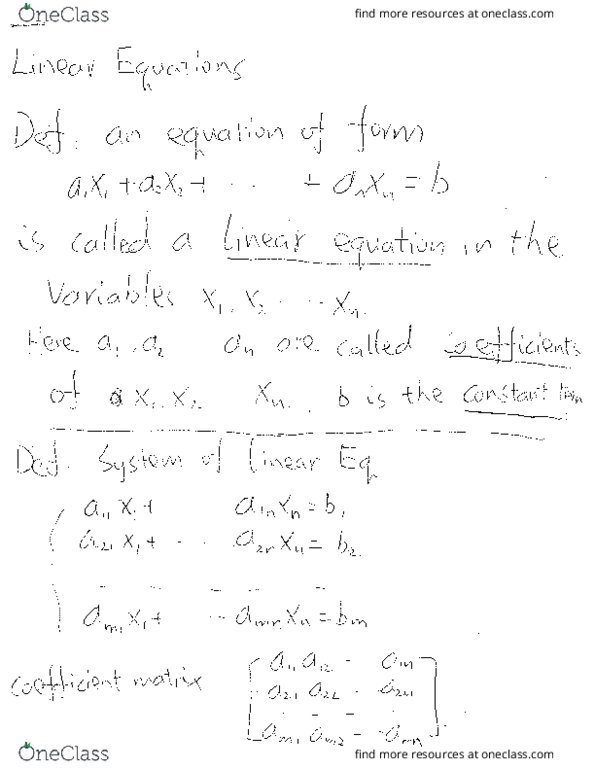 OneClass
find more resources at oneclass.com
Linear Equations
Def. an equation of form
a₁x₁ + a₂x₂ + · · · + aₙxₙ = b
is called a linear equation in the
Variables x₁, x₂ · · · xₙ.
Here a₁, a₂ aₙ are called coefficients
of x₁, x₂ xₙ, b is the constant term
Def. System of Linear Eq
a₁₁x₁ + a₁ₙxₙ = b₁
a₂₁x₁ + · · a₂ₙxₙ = b₂
aₘ₁x₁ + · · aₘₙxₙ = bₘ
coefficient matrix
a₁₁ a₁₂ - a₁ₙ
a₂₁ a₂₂ - a₂ₙ
aₘ₁ aₘ₂ - - aₘₙ
OneClass
find more resources at oneclass.com